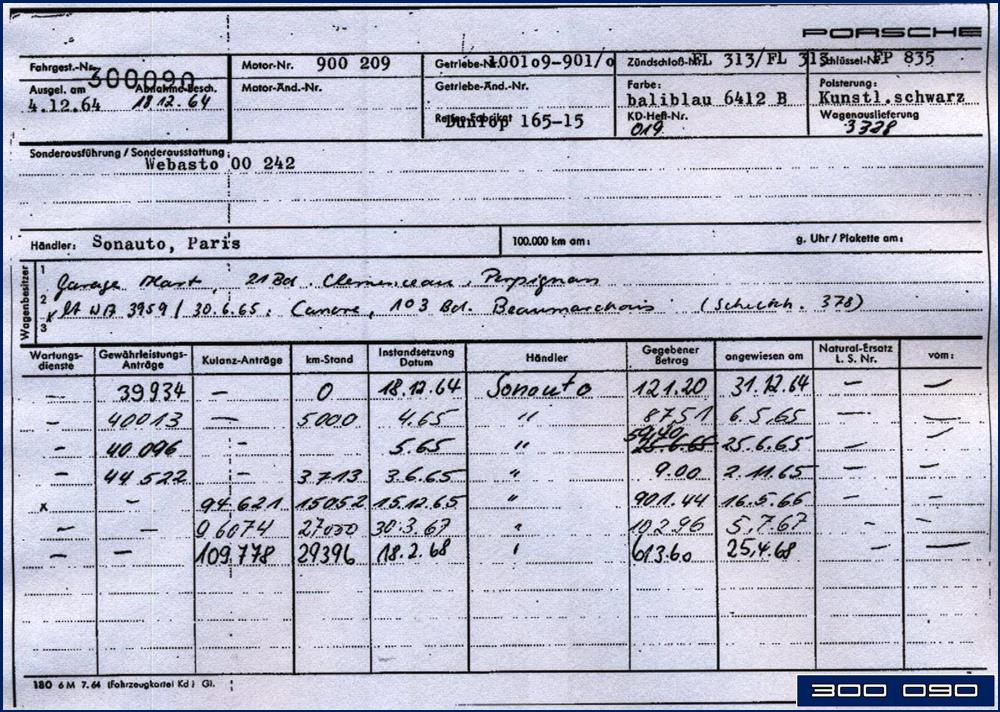 PORSCHE
Fahrgest.-Nr. 300090 Motor-Nr. 900 209 Getriebe-Nr. 100109-901/0 Zündschloß-Nr. FL 313/FL 313 Schlüssel-Nr. FP 835
Ausgel. am 4.12.64 Abnahme-Besch. 18.12.64 Motor-Änd.-Nr. Getriebe-Änd.-Nr. Farbe: baliblau 6412 B Polsterung: Kunstl.schwarz
Reifen-Fabrikat Dunlop 165-15 KD-Heft-Nr. 019 Wagenauslieferung 3328
Sonderausführung / Sonderausstattung:
Webasto 00 242
Händler: Sonauto, Paris 100.000 km am: g. Uhr / Plakette am:
Wagenbesitzer
1 Garage 21 Bd. Clemenceau, Perpignan
2 lt WA 3959 / 30.6.65: Canore, 103 Bd. Beaumarchais (Schultch. 378)
3
Wartungsdienste Gewährleistungs-Anträge Kulanz-Anträge km-Stand Instandsetzung Datum Händler Gegebener Betrag angewiesen am Natural-Ersatz L. S. Nr. vom:
— 39934 — 0 18.12.64 Sonauto 121.20 31.12.64 — —
— 40013 — 5000 4.65 " 87.51 6.5.65 — —
— 40096 — 5.65 " 59,40 25.6.65 25.6.65 — —
— 44522 — 3713 3.6.65 " 9.00 2.11.65 — —
x — 94621 15052 15.12.65 " 901.44 16.5.66 — —
— — 96074 27000 30.3.67 " 102.96 5.7.67 - —
— — 109.778 29396 18.2.68 " 613.60 25.4.68 — —
180 6 M 7. 64 (Fahrzeugkartei Kd ) Gl.
300 090